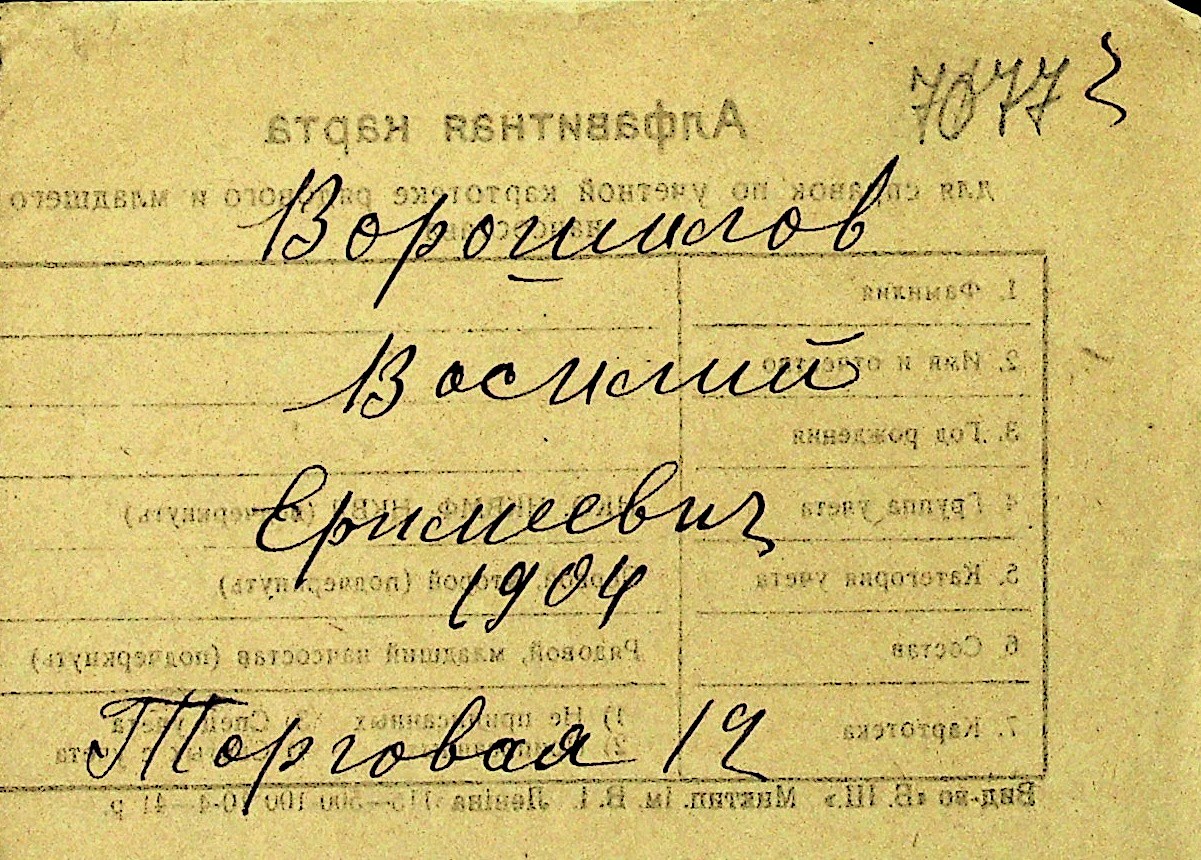 7077
Алфавитная карта
Для справок по учетной картотеке рядового и младшего
начсостава
Ворошилов
1. Фамилия
2. Имя и отчество
Василий
3. Год рождения
4. Группа учета НКВМФ, НКВД (подчеркнуть)
Еримеевич
5. Категория учета Первой, второй (подчеркнуть)
1904
6. Состав Рядовой, младший начсостав (подчеркнуть)
7. Картотека 1) Не приписанных Спец учета
2) учета
Торговая 12
Вид-во «В. Ш.» Миктип. ім. В. І. Леніна 500 100 10-4-41 р.